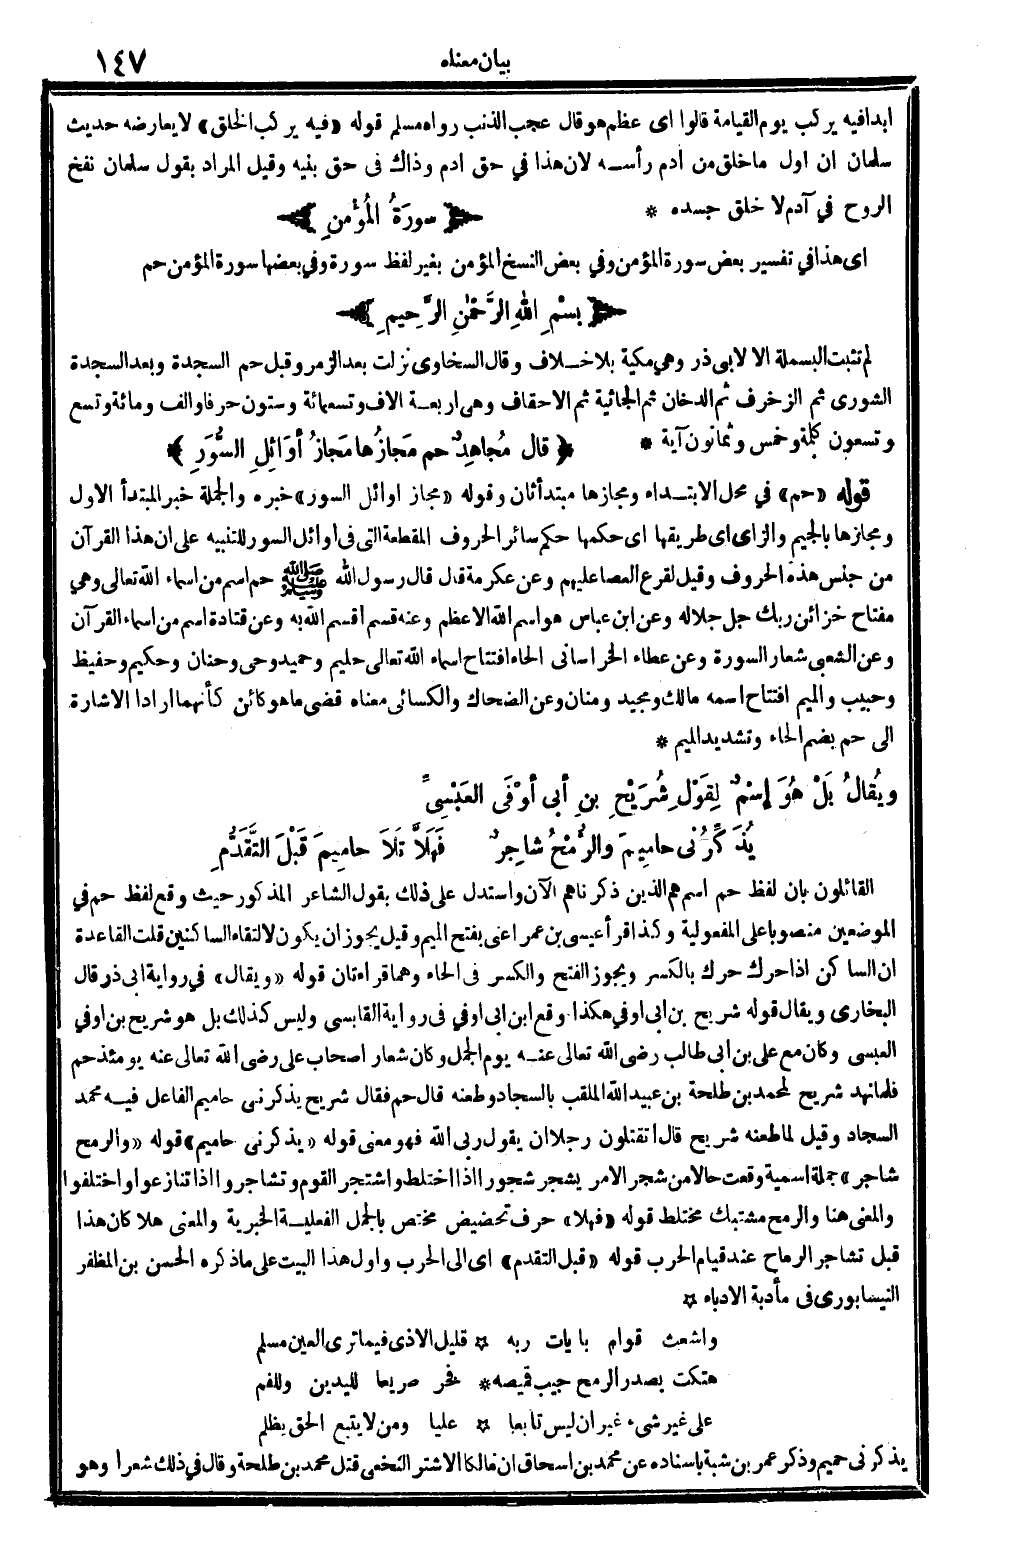 بيان معناه ١٤٧
ابدا فيه يركب يوم القيامة قالوا اى عظم هو قال عجب الذنب رواه مسلم قوله «فيه يركب الخلق» لا يعارضه حديث
سلمان ان اول ما خلق من آدم رأسه لان هذا في حق ادم وذاك فى حق بنيه وقيل المراد بقول سلمان نفخ
الروح في آدم لا خلق جسده * ﴿ سورَةُ المُؤْمنِ ﴾
اى هذا في تفسير بعض سورة المؤمن وفي بعض النسخ المؤمن بغير لفظ سورة وفي بعضها سورة المؤمن حم
﴿ بِسْمِ اللهِ الرَّحْمٰنِ الرَّحِيمِ ﴾
لم تثبت البسملة الا لابى ذر وهي مكية بلا خلاف وقال السخاوى نزلت بعد الزمر وقبل حم السجدة وبعد السجدة
الشورى ثم الزخرف ثم الدخان ثم الجاثية ثم الاحقاف وهى اربعة الاف وتسعمائة وستون حرفا والف ومائة وتسع
وتسعون كلمة وخمس وثمانون آية * ﴿ قال مُجاهِدٌ حم مَجازُها مَجازُ أوَائِلِ السُّوَرِ ﴾
قوله «حم» في محل الابتداء ومجازها مبتدأ ثان وقوله «مجاز اوائل السور» خبره والجملة خبر المبتدأ الاول
ومجازها بالجيم والزاى اى طريقها اى حكمها حكم سائر الحروف المقطعة التى فى اوائل السور للتنبيه على ان هذا القرآن
من جنس هذه الحروف وقيل لقرع العصا عليهم وعن عكرمة قال قال رسول الله ﷺ حم اسم من اسماء الله تعالى وهي
مفتاح خزائن ربك جل جلاله وعن ابن عباس هو اسم الله الاعظم وعنه قسم اقسم الله به وعن قتادة اسم من اسماء القرآن
وعن الشعبى شعار السورة وعن عطاء الخراسانى الحاء افتتاح اسماء الله تعالى حليم وحميد وحى وحنان وحكيم وحفيظ
وحبيب والميم افتتاح اسمه مالك ومجيد ومنان وعن الضحاك والكسائى معناه قضى ما هو كائن كأنهما ارادا الاشارة
الى حم بضم الحاء وتشديد الميم *
ويُقالُ بَلْ هُوَ إسْمٌ لِقَوْلِ شُرَيْحِ بنِ أبى أوْفَى العَبْسِىِّ
يُذَكِّرُنى حاميمَ والرُّمْحُ شاجِرٌ فَهَلاَّ تَلاَ حاميمَ قَبْلَ التَّقَدُّمِ
القائلون بان لفظ حم اسم هم الذين ذكرناهم الآن واستدل على ذلك بقول الشاعر المذكور حيث وقع لفظ حم في
الموضعين منصوبا على المفعولية وكذا قرأ عيسى بن عمر اعنى بفتح الميم وقيل يجوز ان يكون لالتقاء الساكنين قلت القاعدة
ان الساكن اذا حرك حرك بالكسر ويجوز الفتح والكسر فى الحاء وهما قراءتان قوله «ويقال» في رواية ابى ذر قال
البخارى ويقال قوله شريح بن ابى اوفي هكذا وقع ابن ابى اوفي فى رواية القابسى وليس كذلك بل هو شريح بن اوفي
العبسى وكان مع على بن ابى طالب رضى الله تعالى عنه يوم الجمل وكان شعار اصحاب على رضى الله تعالى عنه يومئذ حم
فلما نهد شريح لمحمد بن طلحة بن عبيد الله الملقب بالسجاد وطعنه قال حم فقال شريح يذكرنى حاميم الفاعل فيه محمد
السجاد وقيل لما طعنه شريح قال اتقتلون رجلا ان يقول ربى الله فهو معنى قوله «يذكرنى حاميم» قوله «والرمح
شاجر» جملة اسمية وقعت حالا من شجر الامر يشجر شجورا اذا اختلط واشتجر القوم وتشاجروا اذا تنازعوا واختلفوا
والمعنى هنا والرمح مشتبك مختلط قوله «فهلا» حرف تحضيض مختص بالجمل الفعلية الخبرية والمعنى هلا كان هذا
قبل تشاجر الرماح عند قيام الحرب قوله «قبل التقدم» اى الى الحرب واول هذا البيت على ما ذكره الحسن بن المظفر
النيسابورى فى مأدبة الادباء *
واشعث قوام بايات ربه * قليل الاذى فيما ترى العين مسلم
هتكت بصدر الرمح جيب قميصه * فخر صريعا لليدين وللفم
على غير شىء غير ان ليس تابعا * عليا ومن لا يتبع الحق يظلم
يذكرنى حميم وذكر عمر بن شبة باسناده عن محمد بن اسحاق ان مالكا الاشتر النخعى قتل محمد بن طلحة وقال في ذلك شعرا وهو